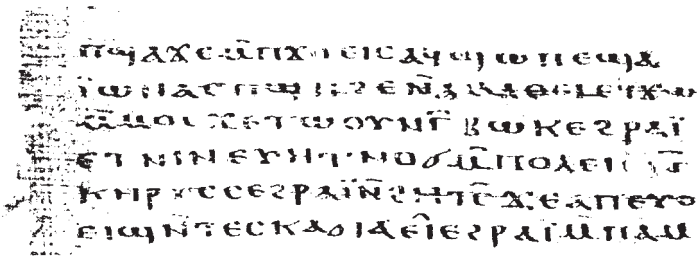 ⲡ̄ϣⲁϫⲉⲙ̄ⲡϫⲟⲉⲓⲥⲁϥϣⲱⲡⲉϣⲁ
ⲓ̈ⲱⲛⲁⲥⲡϣⲏⲣⲉⲛ̄ⲁⲙⲁⲑⲉⲓⲉϥϫⲱ
ⲙ̄ⲙⲟⲥϫⲉⲧⲱⲟⲩⲛⲅ̄ⲃⲱⲕⲉϩⲣⲁⲓ̈
ⲉⲧⲛⲓⲛⲉⲩⲏⲧⲛⲟϭⲙ̄ⲡⲟⲗⲉⲓⲥⲛⲅ̄
ⲕⲏⲣⲩⲥⲥⲉϩⲣⲁⲓ̈ⲛ̄ϩⲏⲧⲥ̄ϫⲉⲁⲡⲉⲩⲟ
ⲉⲓϣⲛ̄ⲧⲉⲥⲕⲁϭⲓⲁⲉⲓ̂ⲉϩⲣⲁⲓ̈ⲙ̄ⲡⲁⲙ